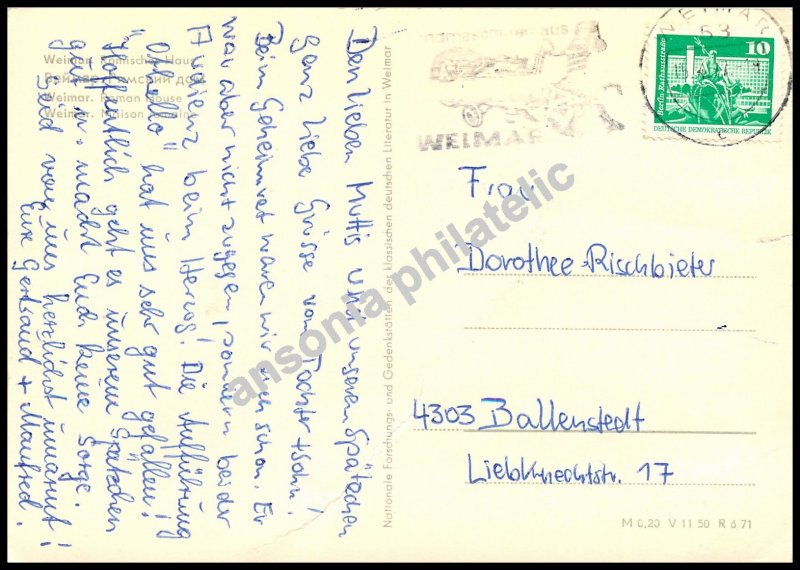 Den lieben Muttis und unseren Spätzchen
ganz liebe Grüsse von Tochter + Sohn!
Beim Geheimrat waren wir schon. Er
war aber nicht zugegen, sondern bei der
Audienz beim Herzog! Die Aufführung
"Othello" hat uns sehr gut gefallen!
Hoffentlich geht es unserem Spätzchen
gut u. macht Euch keine Sorge.
Seid von uns herzlichst umarmt!
Eure Gertraud + Manfred.
Weimar. Römisches Haus
Веймар. Римский дом
Weimar. Roman House
Weimar. Maison romaine
Nationale Forschungs- und Gedenkstätten der klassischen deutschen Literatur in Weimar
aus
WEIMAR
WEIMAR
53
10
Berlin, Rathausstraße
DEUTSCHE DEMOKRATISCHE REPUBLIK
Frau
Dorothee Rischbieter
4303 Ballenstedt
Liebknechtstr. 17
M 0,20 V 11 50 R 6 71
ansonia philatelic